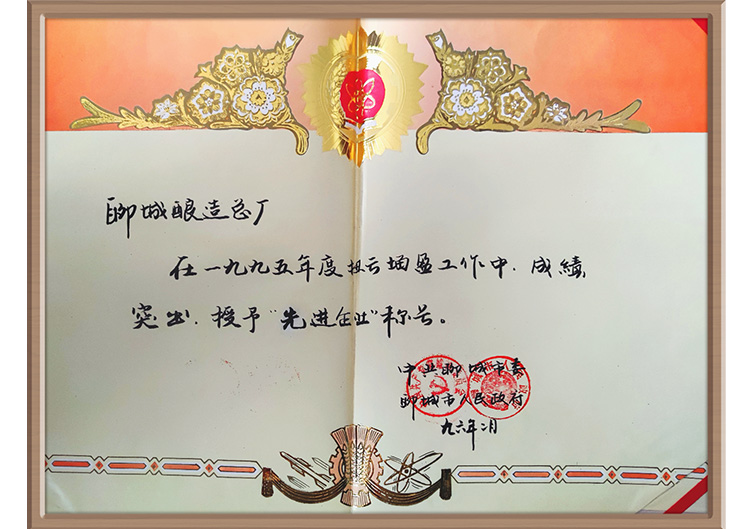 聊城酿造总厂
在一九九五年度扭亏增盈工作中.成绩
突出.授予“先进企业”称号。
中共聊城市委
聊城市人民政府
九六年二月